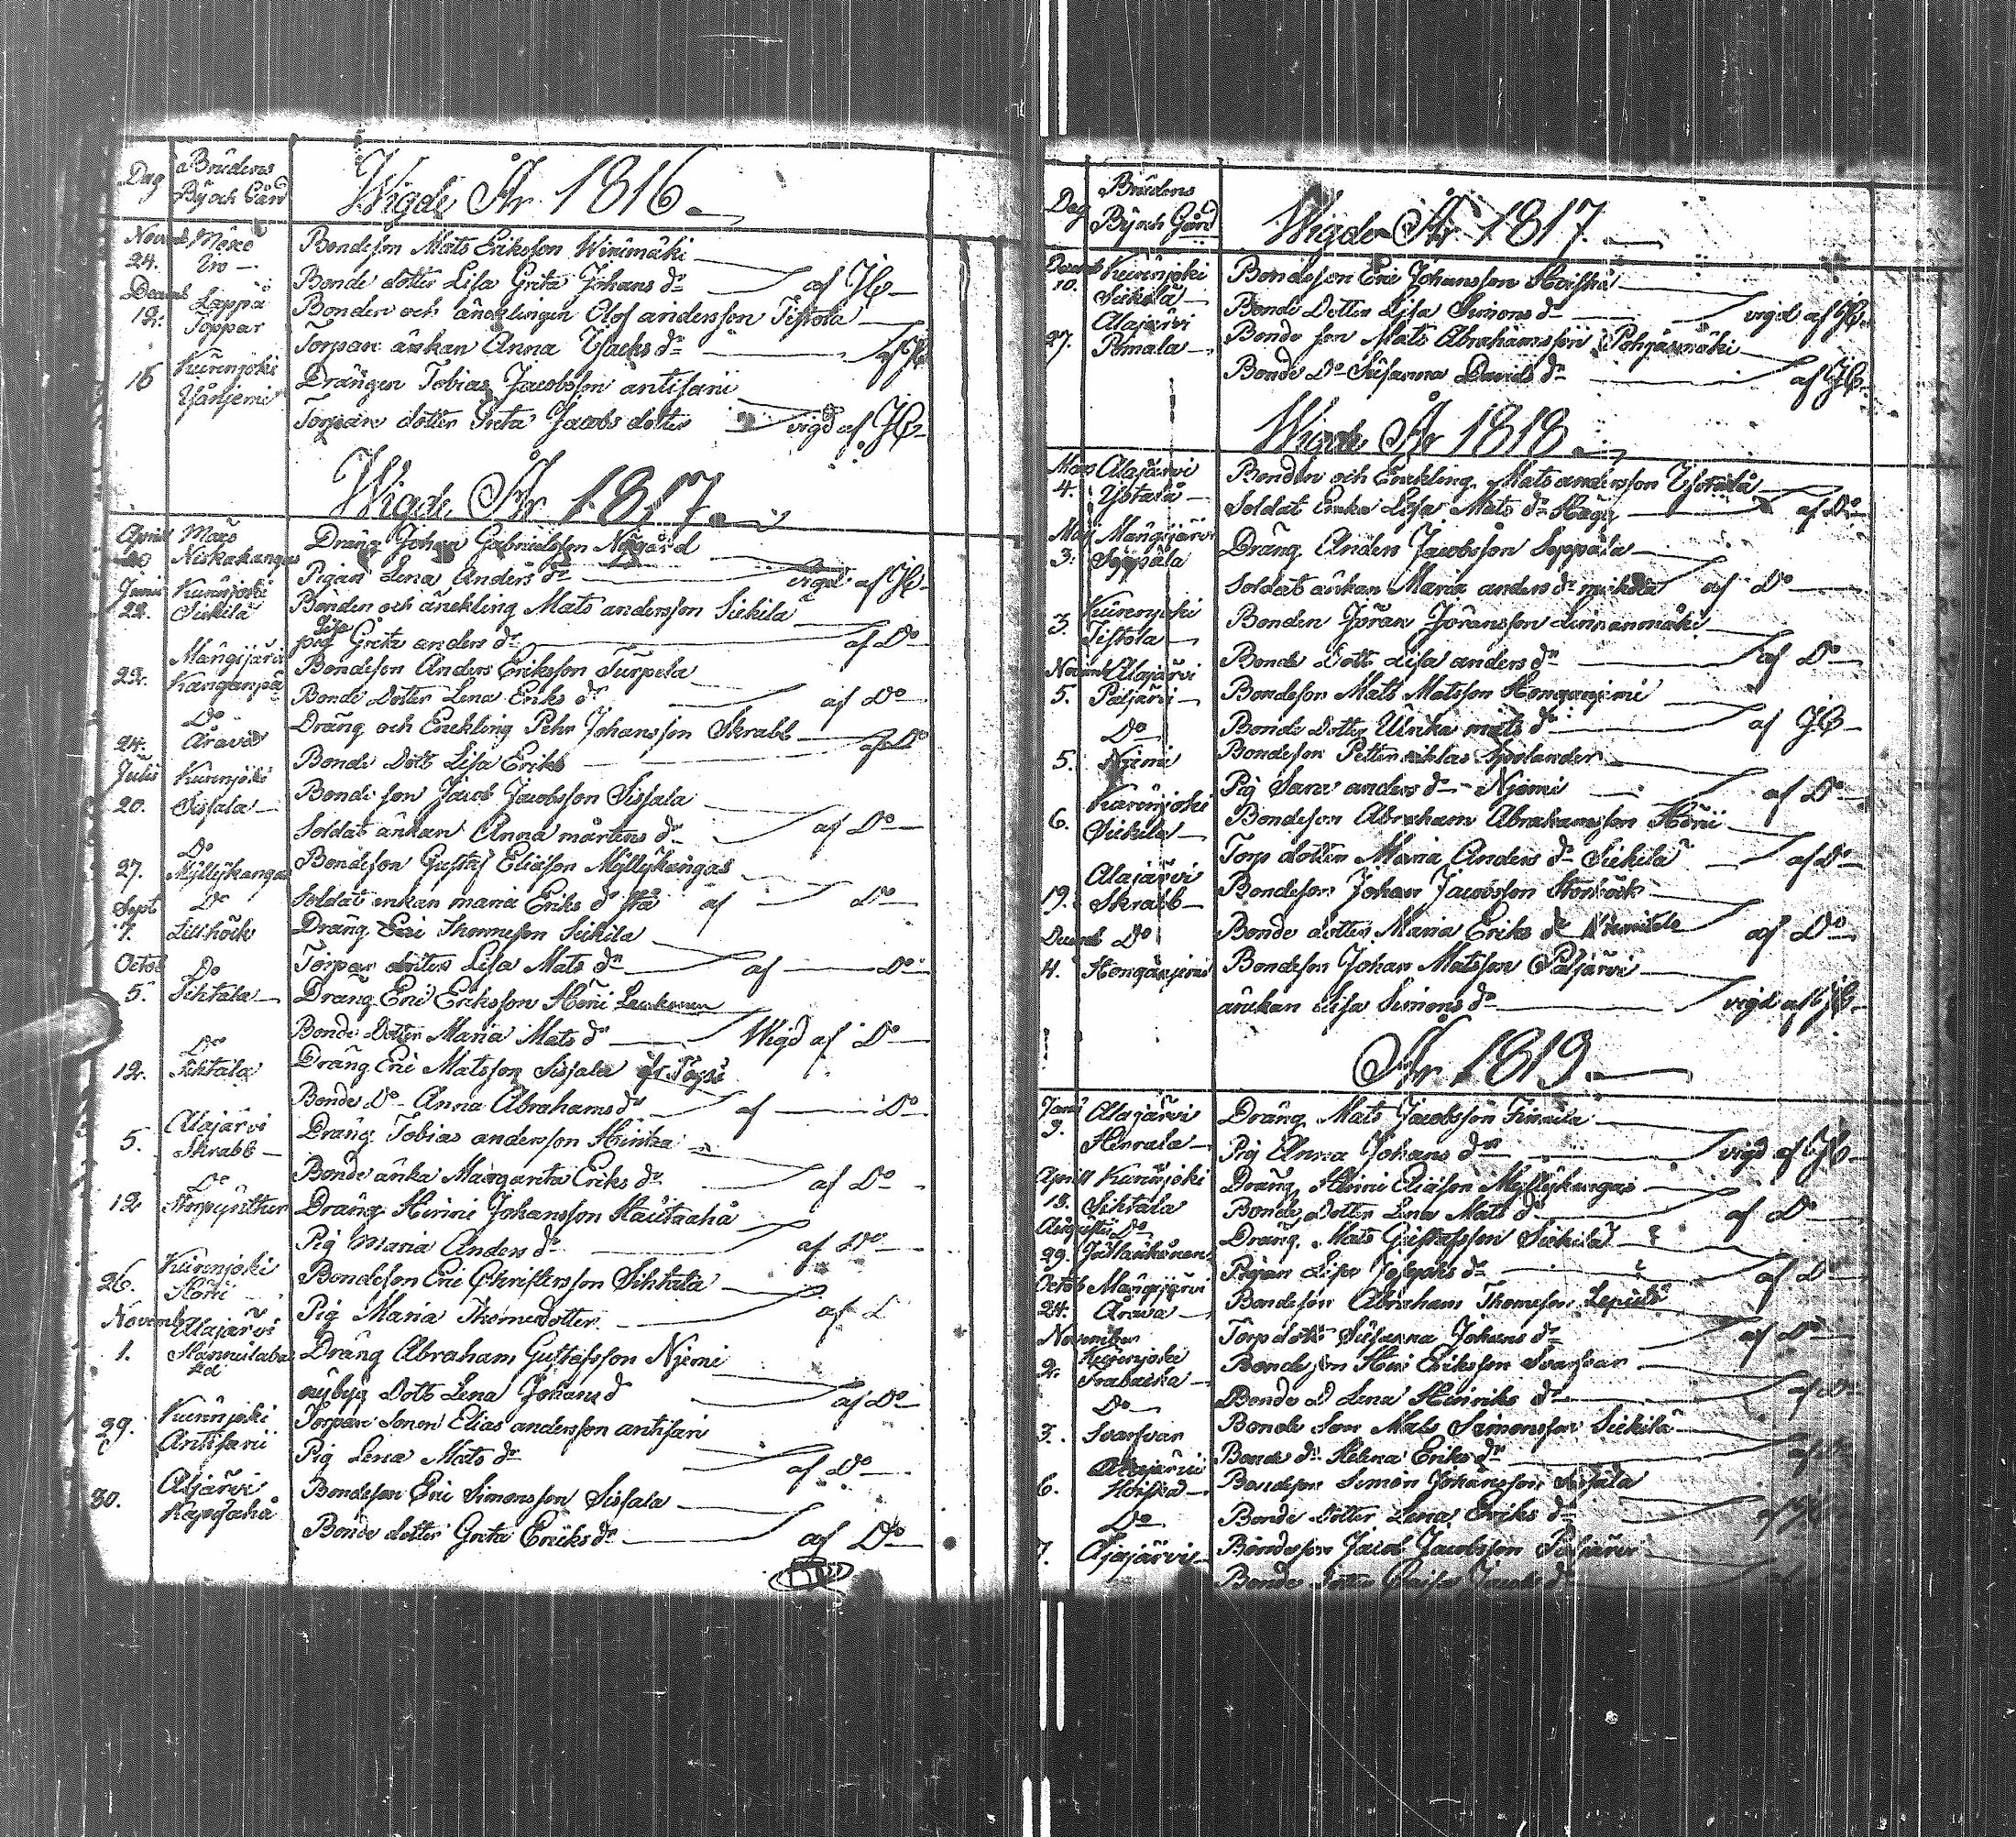 Dag
Brudens
By och Gård
Wigde År 1816.
Novemb Möxö
24.
Bondeson Mats Eriksson Winimäki
Bonde dotter Lisa Greta Johans dr af JH
Decemb Lappa
12. Toppar
Bonden och änklingen Olof andersson Tistola
Torpare änkan Anna Isacks dr af JH
18 Kurenjoki
Drängen Tobias Jacobsson antisari
Torpare dotter Greta Jacobs dotter vigd af JH
Wigde År 1817.
April Möxö
Niskakangas
Dräng Johan Gabrielsson Nÿgård
Pigan Lena Anders dr vigd af JH
Junii Kurenjoki
22. Siekilä
Bonden och änckling Mats andersson Siekila
Lisa
pig Greta anders dr af Do
Mängijärvi
22. Kanganpä
Bondeson Anders Eriksson Turpela
Bonde Dotter Lena Eriks dr af Do
Do
24. Åravas
Dräng och Enckling Pehr Johansson Skrabb
Bonde Dott Lisa Eriks af Do
Julii Kurenjoki
20. Sissala
Bonde son Jacob Jacobsson Sissala
Soldat änkan Anna mårtens dr af Do
Do
27. Myllykangas
Bondeson Gustaf Eliasson Myllykangas
Soldat enkan maria Eriks dr af Do
Sept Do
7. Lillhöik
Dräng Eric Thomesson Siekila
Torpar dotter Lisa Mats dr af Do
Octob Do
5. Sihtala
Dräng Eric Eriksson Höri
Bonde Dotter Maria Mats dr Wigd af Do
Do
12. Sihtala
Dräng Eric Matsson Sissala
Bonde Do Anna Abrahams dr af Do
Alajärvi
5. Skrabb
Dräng Tobias andersson Hinika
Bonde änka Margareta Eriks dr af Do
Do
12
Dräng Hinric Johansson Hautaaha
Pig Maria Anders dr af Do
Kurenjoki
26. Höri
Bondeson Eric Christersson Sihtala
Pig Maria Thomedotter af
Novemb Alajärvi
1.
Dräng Abraham Gustafsson Njemi
nybyg Dott Lena Johans d af Do
Kurenjoki
29. Antisarii
Torpare Sonen Elias andersson antisari
Pig Lena Mats dr af Do
Aljärvi
30.
Bondeson Eric Simonsson Sissala
Bonde dotter Greta Eriks dr af Do
Dag
Brudens
By och Gård
Wigde År 1817.
Decemb Kurenjoki
10. Siekola
Bondesson Eric Johansson Hoiska
Bonde Dotter Lisa Simons dr vigd af JH
Alajärvi
27. Pemala
Bonde son Mats Abrahamsson Pohjasmäki
Bonde Do Susanna Davids dr af JH
Wigde År 1818.
Mars Alajärvi
4. Ylitalå
Bonden och Enckling Mats andersson
Soldat Enka Lisa Mats dr af Do
Maj Mängijärvi
3. Seppäla
Dräng Anders Jacobsson Seppäla
Soldats änkan Maria anders dr af Do
Kurenjoki
3. Tistola
Bonden Jöran Jöransson Linnanmäki
Bonde Dott Lisa anders dr af Do
Novemb Alajärvi
5. Paljärvi
Bondeson Mats Matsson Honganjemi
Bonde Dotter Ulrika mats dr af JH
Do
5. Njemi
Bondeson Petter niklas
Pig Sara anders dr Njemi af Do
Kurenjoki
6. Siekila
Bondeson Abraham Abrahamsson Höri
Torp dotter Maria Anders dr Siekila af Do
Alajärvi
19. Skrabb
Bondeson Johan Jacobsson Storhöik
Bonde dotter Maria Eriks dr af Do
Decemb Do
4. Honganjemi
Bondeson Johan Matsson Paljärvi
änkan Lisa Simons dr vigd af JH
År 1819.
Janu Alajärvi
9.
Dräng Mats Jacobsson
Pig Anna Johans dr vigd af JH
April Kurenjoki
18. Sihtala
Dräng Hinric Eliasson Myllykangas
Bonde Dotter Lena Mats dr af Do
Augusti Do
29.
Dräng Mats Gustafsson Siekila
Pigan Lisa Josephs dr af Do
Octob Mängijärvi
24. Årava
Bondeson Abraham Thomeson
Torp dott Susanna Johans dr af Do
November
Kurenjoki
2.
Bondeson Eriksson Svarfvar
Bonde d Lena Hinriks dr af Do
Do
3. Svarfvar
Bonde Son Mats Simonsson Siekilä
Bonde dr Helena Eriks dr af Do
Alajärvi
6.
Bondeson Simon Johansson Sissala
Bonde Dotter Lena Eriks dr af
Do
7. Alajärvi
Bondeson Jacob Jacobsson Paljärvi
Bonde Dotter Jacobs dr